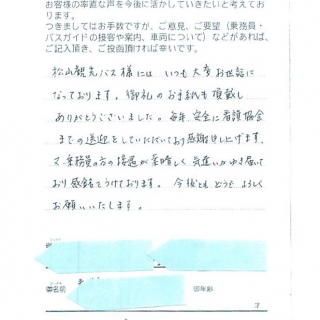 お客様の率直な声を今後に活かしていきたいと考えて
おります。
つきましてはお手数ですが、ご意見、ご要望（乗務員・
バスガイドの接客や案内、車両について）などがあれば、
ご記入頂き、ご投函頂ければ幸いです。
松山観光バス様には いつも大変お世話に
なっております。御礼のお手紙も頂戴し
ありがとうございました。毎年、安全に看護協会
までの送迎をしていただいており感謝申し上げます。
又、乗務員の方の接遇が素晴しく気遣いがゆき届いて
おり感銘をうけております。今後とも どうぞ よろしく
お願いいたします。
御名前
御年齢
才